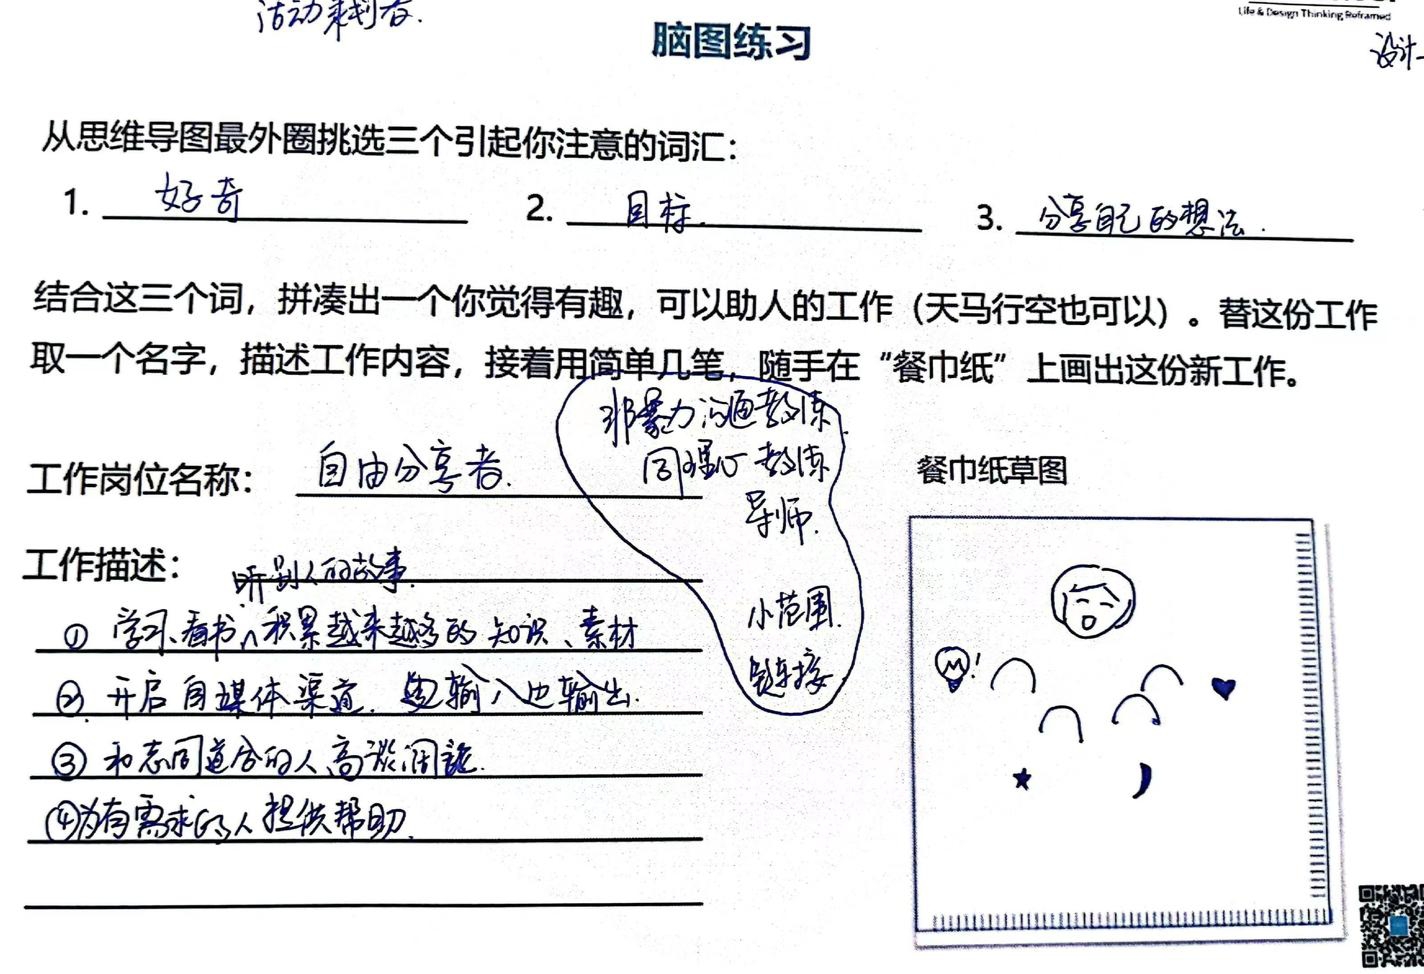 活动策划者.
Life & Design Thinking Reframed
设计
脑图练习
从思维导图最外圈挑选三个引起你注意的词汇：
1. 好奇 2. 目标. 3. 分享自己的想法.
结合这三个词，拼凑出一个你觉得有趣，可以助人的工作（天马行空也可以）。替这份工作
取一个名字，描述工作内容，接着用简单几笔，随手在“餐巾纸”上画出这份新工作。
非暴力沟通教练.
同理心教练
导师.
小范围.
链接.
工作岗位名称： 自由分享者.
餐巾纸草图
工作描述：
听别人的故事.
① 学习、看书、积累越来越多的知识、素材
② 开启自媒体渠道. 边输入边输出.
③ 和志同道合的人高谈阔论.
④为有需求的人提供帮助.